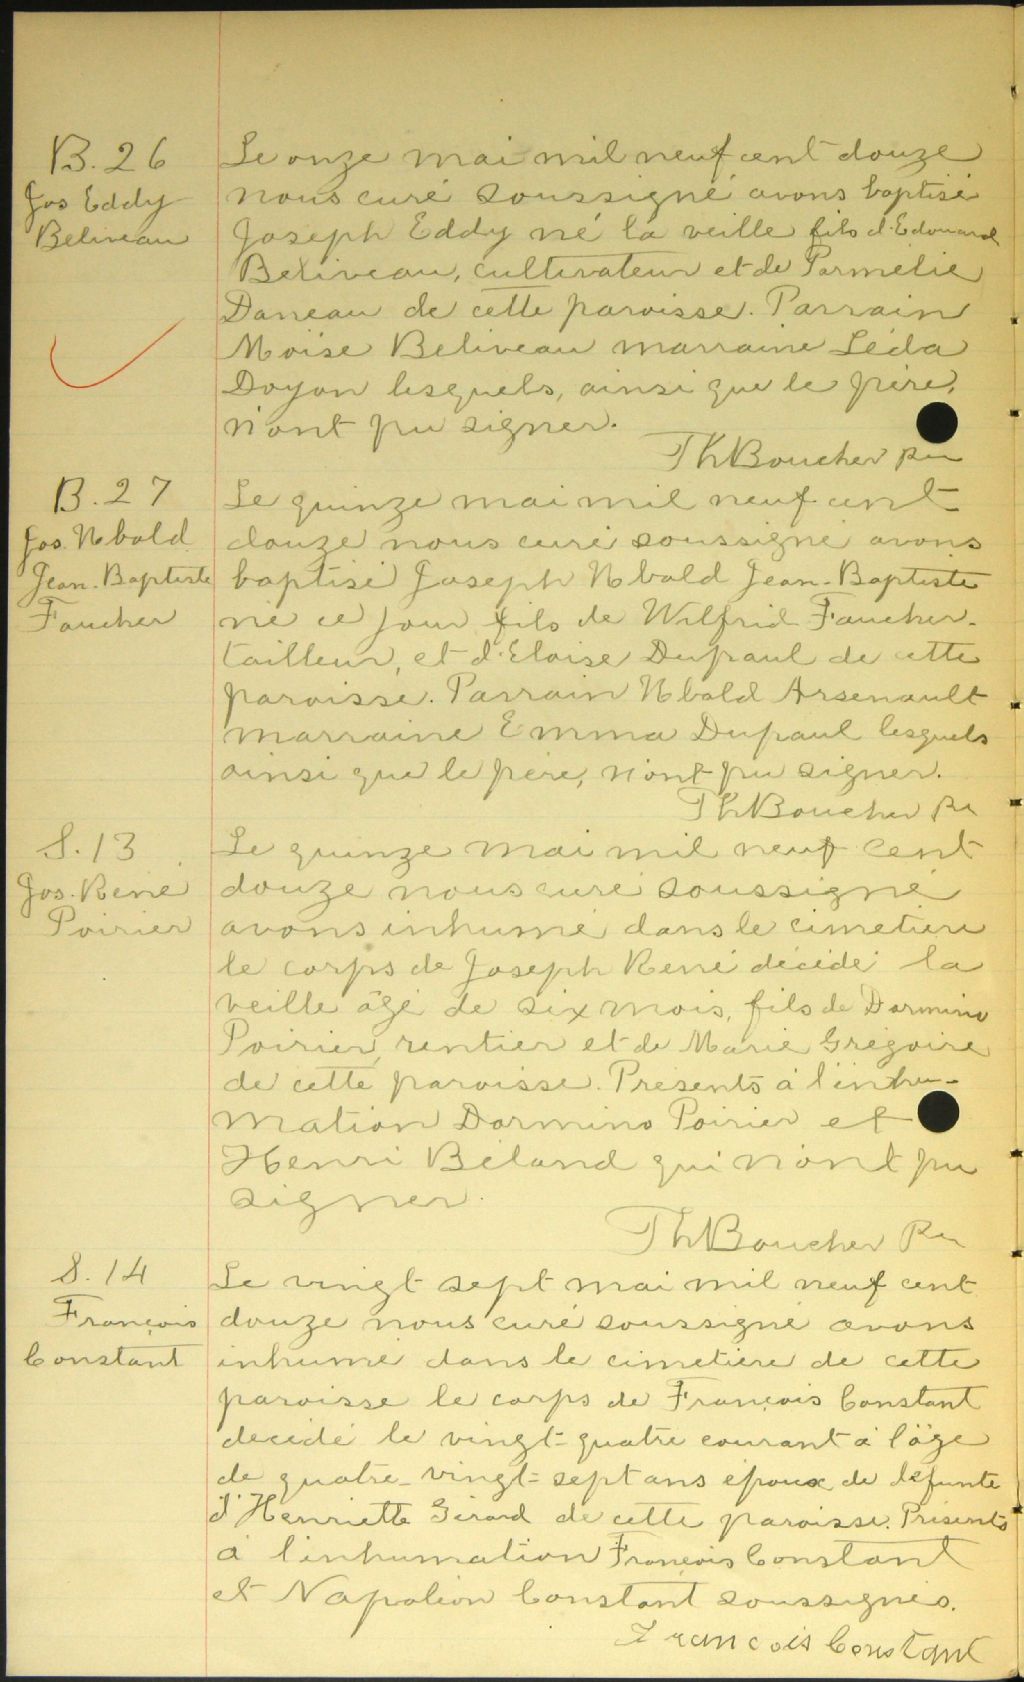 B. 26
Jos Eddy
Beliveau
Le onze mai mil neuf cent douze
nous curé soussigné avons baptisé
Joseph Eddy né la veille fils d'Edouard
Beliveau, cultivateur et de Parmelie
Daneau de cette paroisse. Parrain
Moïse Beliveau marraine Léda
Doyon lesquels, ainsi que le père,
n'ont pu signer.
Th Boucher
B. 27
Jos. Ubald
Jean-Baptiste
Faucher
Le quinze mai mil neuf cent
douze nous curé soussigné avons
baptisé Joseph Ubald Jean-Baptiste
né ce jour fils de Wilfrid Faucher
tailleur, et d'Eloise Dupaul de cette
paroisse. Parrain Ubald Arsenault
marraine Emma Dupaul lesquels
ainsi que le père, n'ont pu signer.
Th Boucher
S. 13
Jos. René
Poirier
Le quinze mai mil neuf cent
douze nous curé soussigné
avons inhumé dans le cimetière
le corps de Joseph René décédé la
veille âgé de six mois, fils de Dormino
Poirier, rentier et de Marie Grégoire
de cette paroisse. Présents à l'inhu-
mation Dormino Poirier et
Henri Béland qui n'ont pu
signer.
Th Boucher
S. 14
François
Constant
Le vingt sept mai mil neuf cent
douze nous curé soussigné avons
inhumé dans le cimetière de cette
paroisse le corps de François Constant
décédé le vingt-quatre courant à l'âge
de quatre-vingt-sept ans époux de défunte
d'Henriette Girard de cette paroisse. Présents
à l'inhumation François Constant
et Napoléon Constant soussignés.
Francois Constant